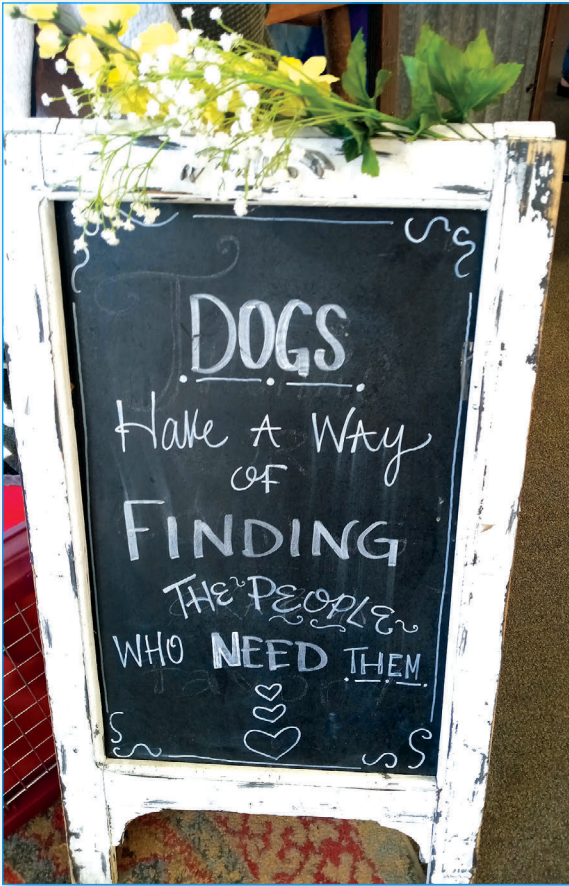 DOGS
Have A WAy
OF
FINDING
THE PEOPLE
WHO NEED THEM